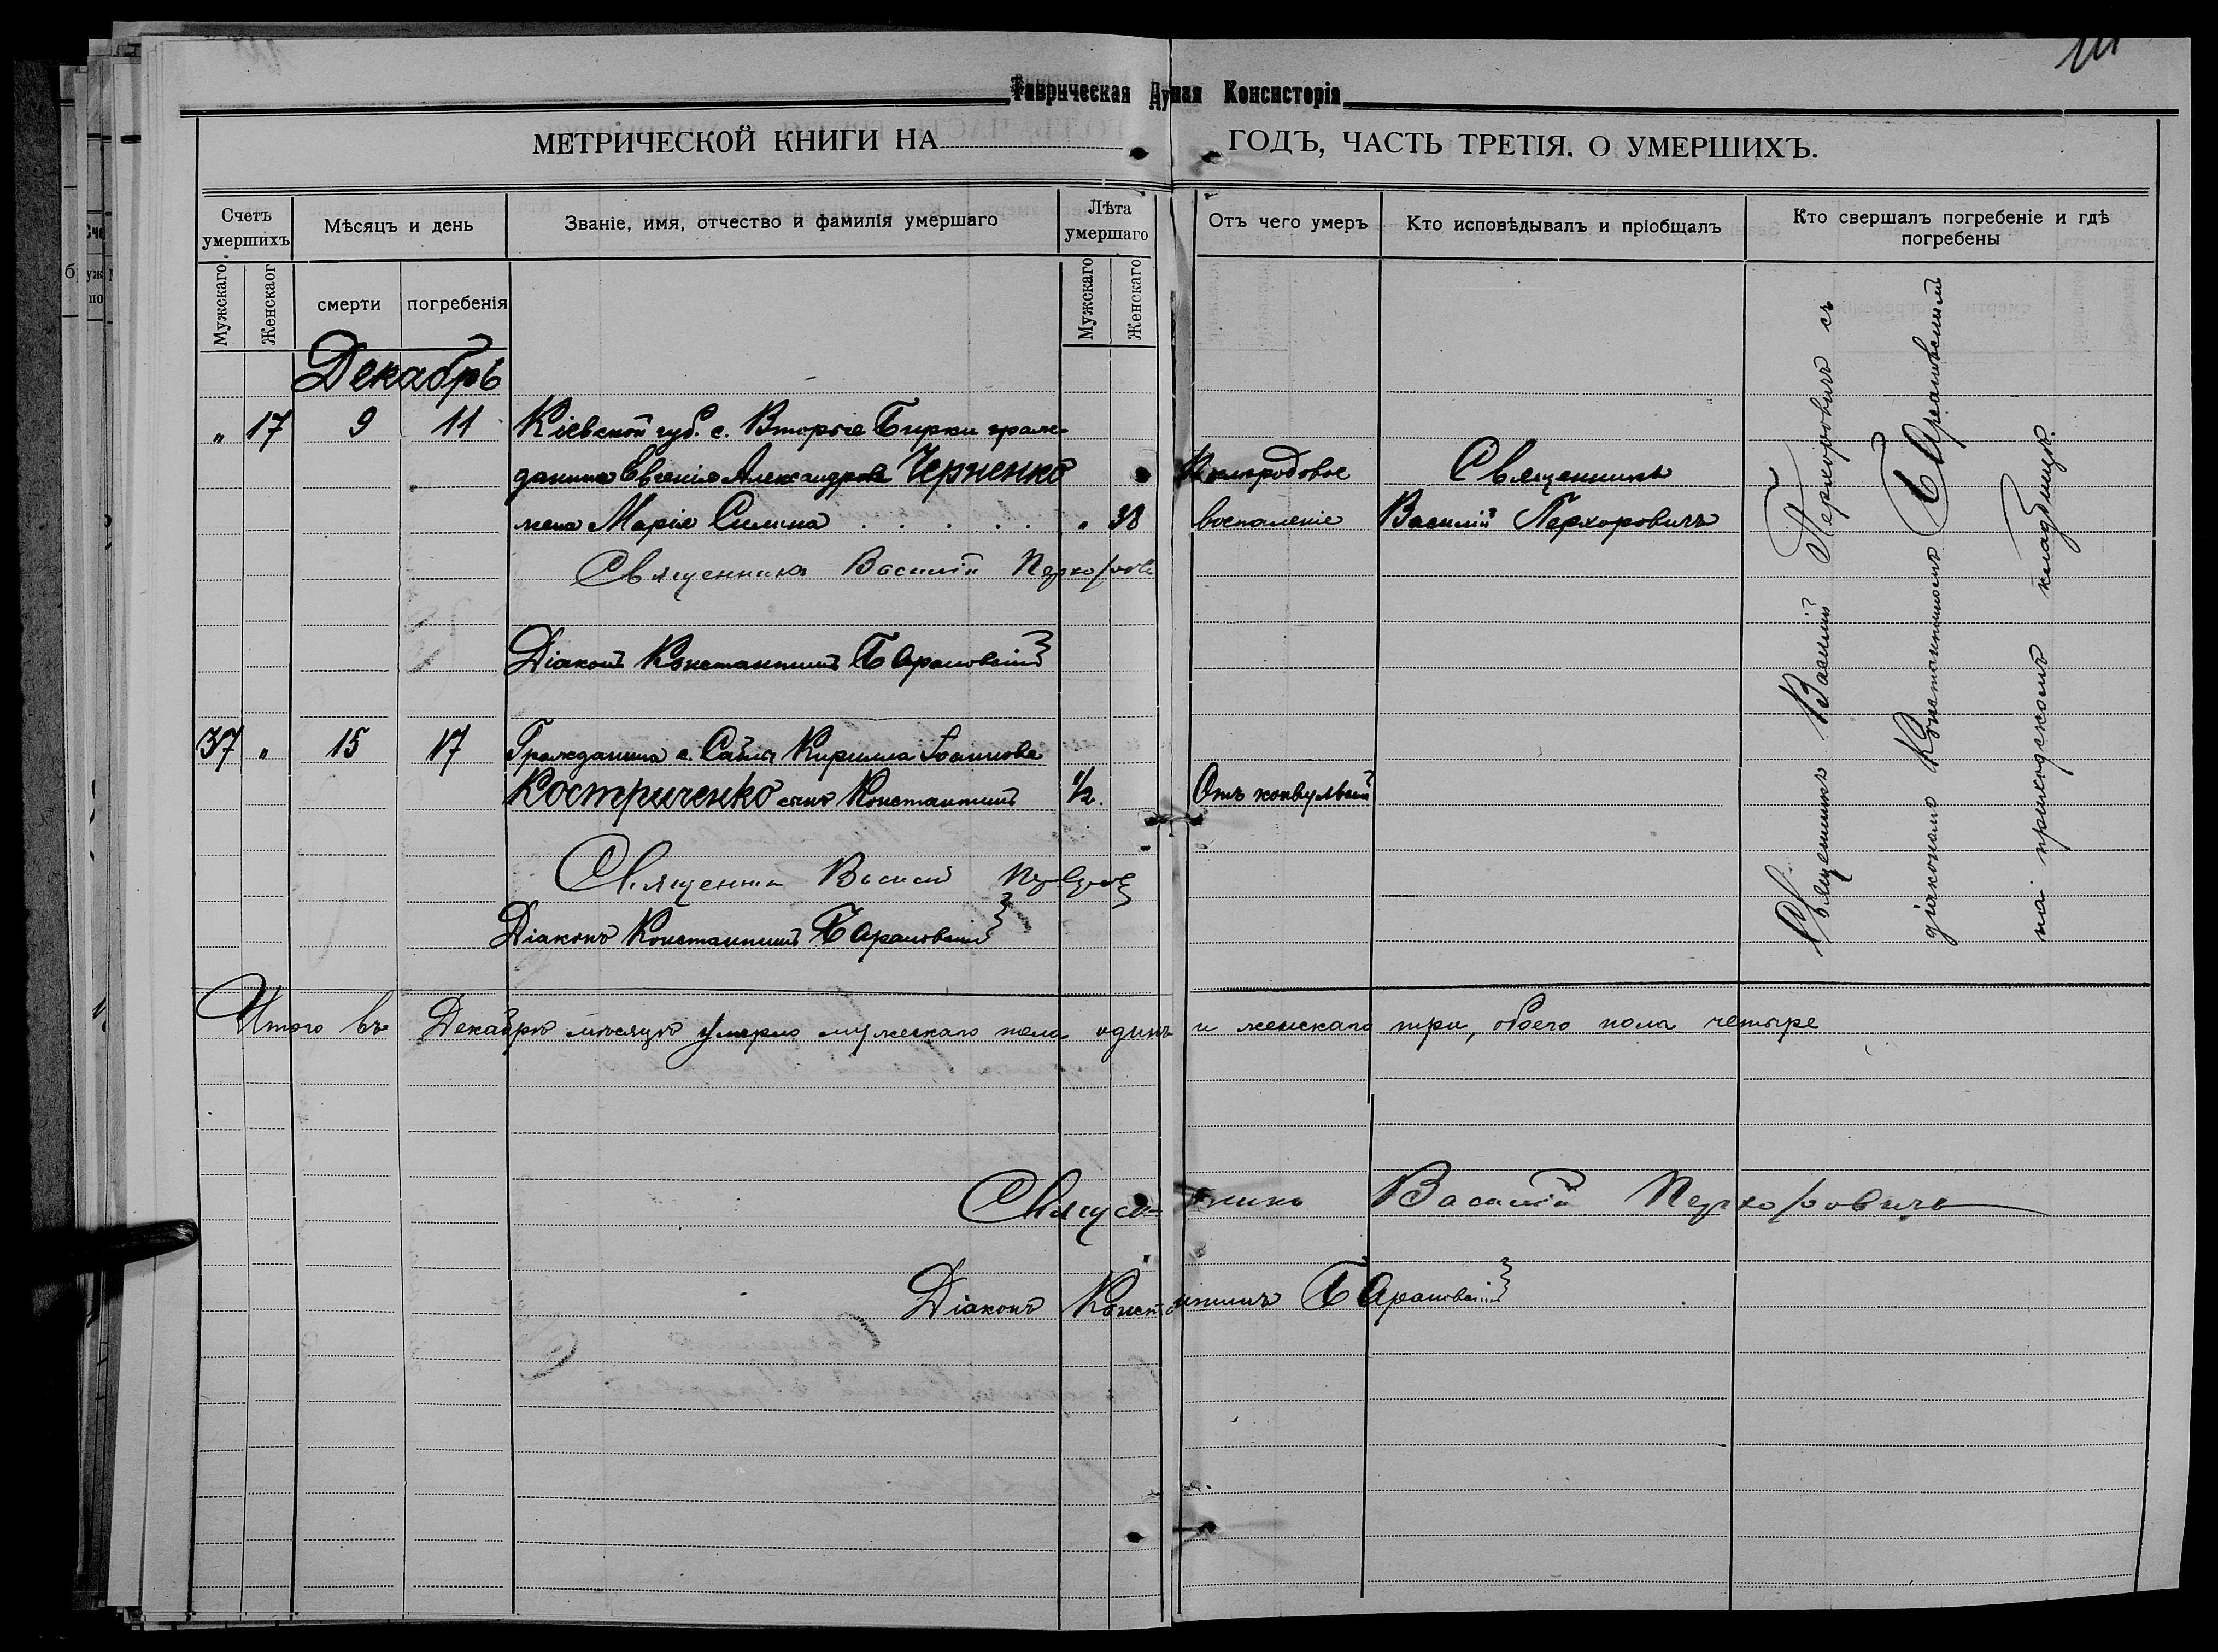 Таврическая Духная Консисторія
МЕТРИЧЕСКОЙ КНИГИ НА ГОДЪ, ЧАСТЬ ТРЕТІЯ. О УМЕРШИХЪ.
Счетъ умершихъ
Мѣсяцъ и день
Званіе, имя, отчество и фамилія умершаго
Лѣта умершаго
Отъ чего умеръ
Кто исповѣдывалъ и пріобщалъ
Кто свершалъ погребеніе и гдѣ погребены
Мужскаго
Женскаог
смерти
погребенія
Мужскаго
Женскаго
Декабрь
„ 17 9 11 Кіевской губ. с. Вторые Бирки граж-
данина Евгенія Александрова Черненко Священникъ
жена Марія Силина . . . . . „ 38 воспаленіе Василій Перхоровичъ
Священникъ Василій Перхоровъ
Діаконъ Константинъ Барановскій
37 „ 15 17 Гражданина с. Саблы Кирилла Іоаннова
Костриченко сынъ Константинъ 1/2. Отъ конвульсій
Священникъ Василій
Діаконъ Константинъ Барановскій
Священникъ Василій Перхоровичъ съ
діакономъ Константиномъ Барановскимъ
на приходскомъ кладбищѣ.
Итого въ Декабрѣ мѣсяцѣ умерло мужескаго пола одинъ и женскаго три, обоего пола четыре
Священникъ Василій Перхоровичъ
Діаконъ Константинъ Барановскій